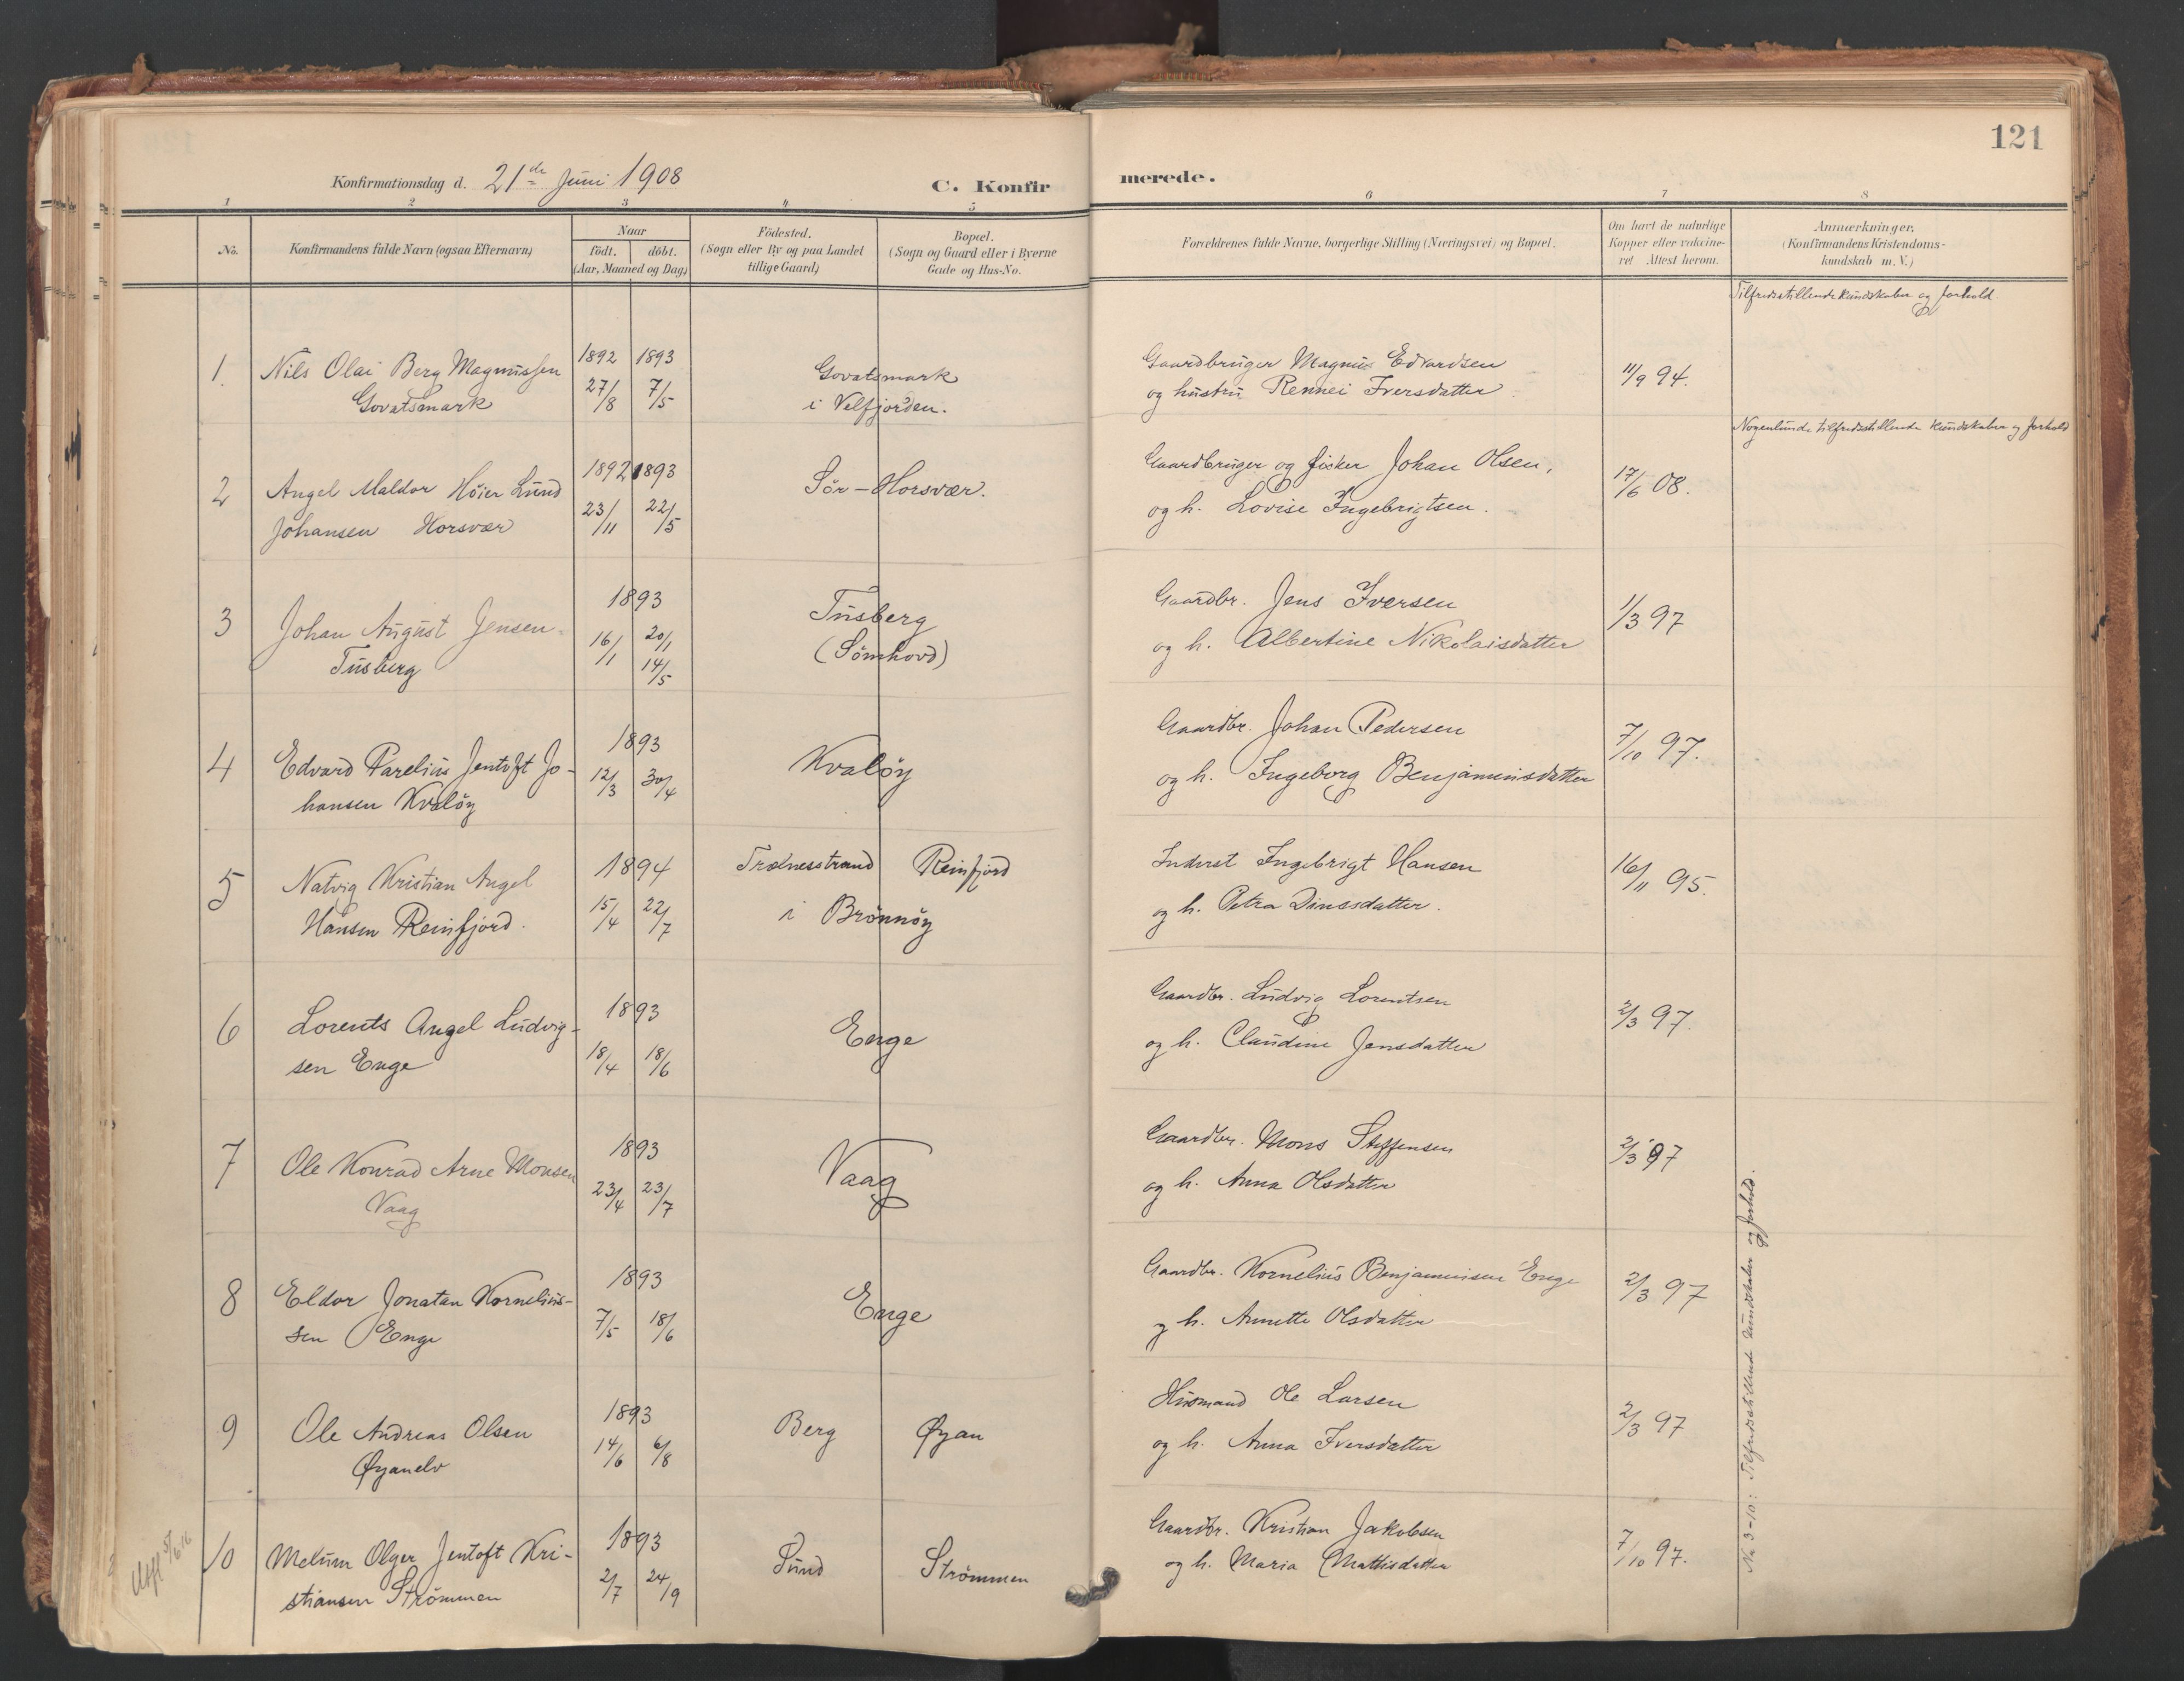 121
Konfirmationsdag d. 21de Juni 1908
C. Konfirmerede.
1 2 3 4 5 6 7 8
No. Konfirmandens fulde Navn (ogsaa Efternavn) Naar födt. döbt. (Aar, Maaned og Dag) Födested. (Sogn eller By og paa Landet tillige Gaard) Bopæl. (Sogn og Gaard eller i Byerne Gade og Hus-No. Forældrenes fulde Navne, borgerlige Stilling (Næringsvei) og Bopæl. Om havt de naturlige Kopper eller vakcineret Attest herom. Anmærkninger. (Konfirmandens Kristendomskundskab m. V.)
Tilfredsstillende kundskaber og forhold.
1. Nils Olai Berg Magnussen 1892 1893 Govatsmark Gaardbruger Magnus Edvardsen 11/9 94.
Govatsmark 27/8 7/5 i Velfjorden. og hustru Rennei Iversdatter
Nogenlunde tilfredsstillende kundskaber og forhold
2 Angel Haldor Höier Lund 1892 1893 Sör-Horsvær. Gaardbruger og fisker Johan Olsen, 17/6 08.
Johansen Horsvær 23/11 22/5 og h. Lovise Ingebrigtsen.
3 Johan August Jensen 1893 Tusberg Gaardbr. Jens Iversen 1/3 97
Tusberg 16/1 20/1 14/5 (Sömhovd) og h. Albertine Nikolaisdatter
4 Edvard Parelius Jentoft Jo- 1893 Kvalöy Gaardbr. Johan Pedersen 7/10 97.
hansen Kvalöy 12/3 30/4 og h. Ingeborg Benjaminsdatter
5 Natvig Kristian Angel 1894 Trælnesstrand Reinfjord Inderst Ingebrigt Hansen 16/11 95.
Hansen Reinfjord. 15/4 22/7 i Brönnöy og h. Petra Dinesdatter.
6 Lorents Angel Ludvig- 1893 Enge Gaardbr. Ludvig Lorentsen 2/3 97.
sen Enge 18/4 18/6 og h. Claudine Jensdatter
7 Ole Konrad Arne Monsen 1893 Vaag Gaardbr. Mons Steffensen 2/3 97
Vaag 23/4 23/7 og h. Anna Olsdatter
8 Eldor Jonatan Kornelius- 1893 Enge Gaardbr. Kornelius Benjaminsen Enge 2/3 97
sen Enge 7/5 18/6 og h. Annette Olsdatter
9 Ole Andreas Olsen 1893 Berg Øyan Husmand Ole Larsen 2/3 97
Øyanelv 14/6 6/8 og h. Anna Iversdatter
10 Melum Olger Jentoft Kri- 1893 Sund Strömmen Gaardbr. Kristian Jakobsen 7/10 97.
stiansen Strömmen 2/7 24/9 og h. Maria Mattisdatter
No 3-10: Tilfredsstillende kundskaber og forhold.
5/6 16